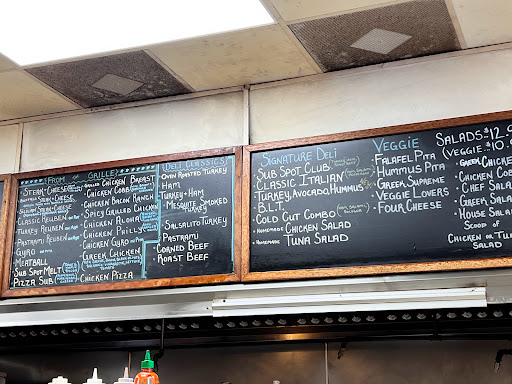 From the Grille
Steak+Cheese
Steak+Cheese
Classic Reuben
Turkey Reuben
Pastrami Reuben
Gyro
Meatball
Sub Spot Melt
Pizza Sub
Grilled Chicken Breast
Chicken Cobb
Chicken Bacon Ranch
Spicy Grilled Chicken
Chicken Alamo
Chicken Philly
Chicken Gyro
Greek Chicken
Chicken Pizza
Deli Classics
Oven Roasted Turkey
Ham
Turkey+Ham
Mesquite Smoked
Turkey
Salsalito Turkey
Pastrami
Corned Beef
Roast Beef
Signature Deli
Sub Spot Club
Classic Italian
Turkey, Avocado, Hummus
BLT
Cold Cut Combo
Homemade Chicken Salad
Homemade Tuna Salad
Veggie
Falafel Pita
Hummus Pita
Greek Supreme
Veggie Lovers
Four Cheese
Salads-$12.9
(Veggie-$10.
Greek Chicken
Chicken Cobb
Chef Salad
Greek Salad
House Salad
Scoop of
Chicken or Tu
Salad